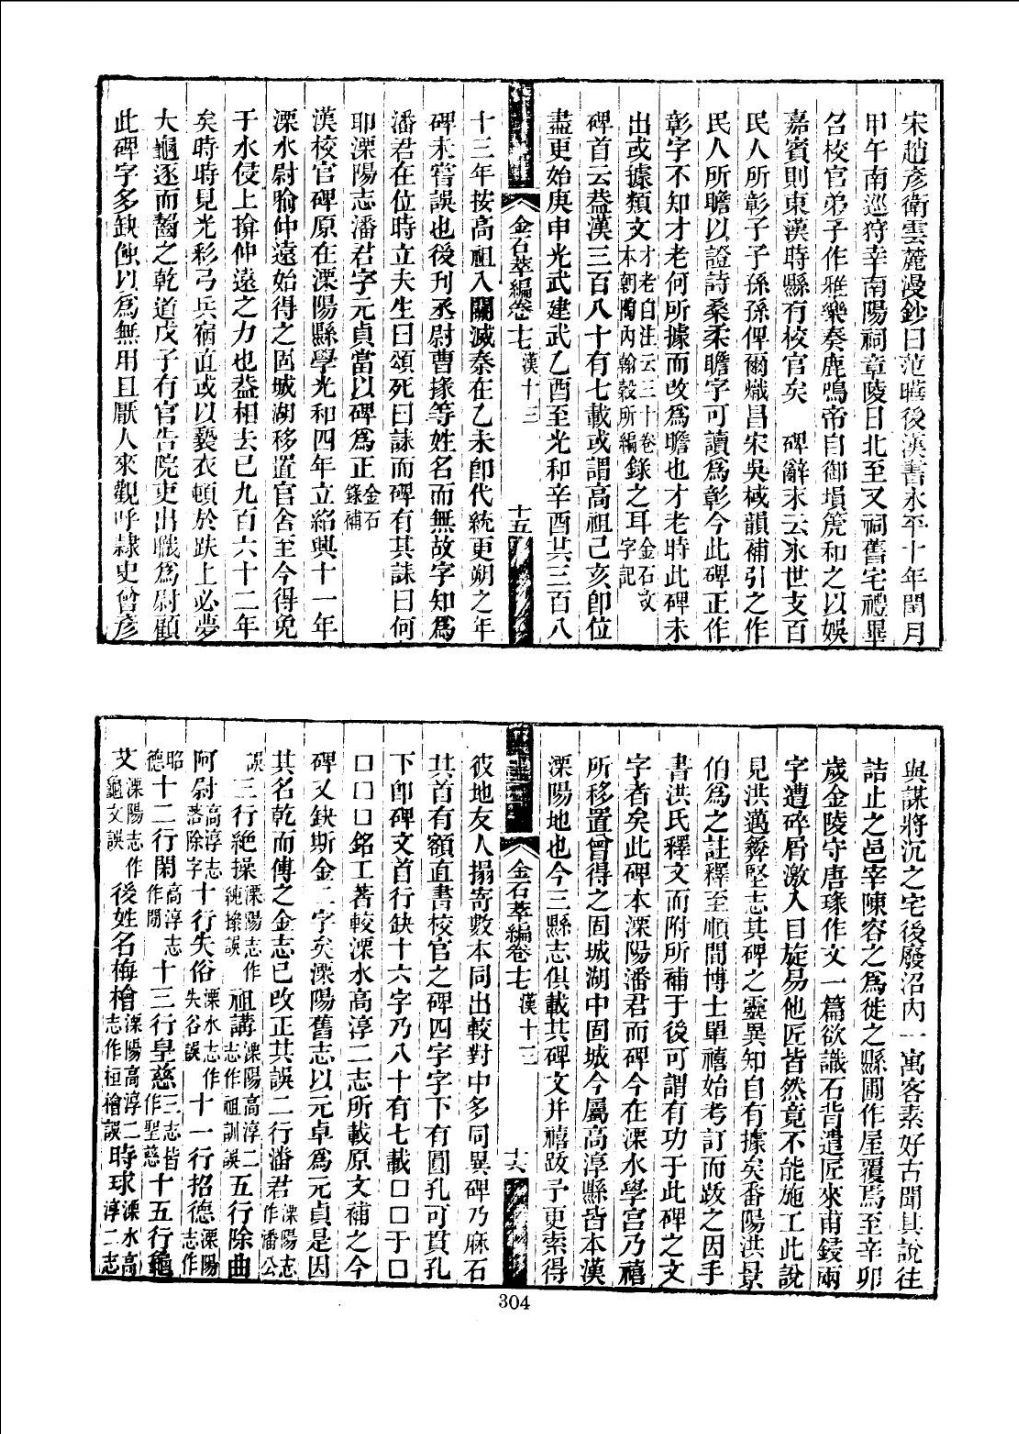 宋趙彥衛雲麓漫鈔曰范曄後漢書永平十年閏月
甲午南巡狩幸南陽祠章陵日北至又祠舊宅禮畢
召校官弟子作雅樂奏鹿鳴帝自御塤箎和之以娛
嘉賓則東漢時縣有校官矣　碑辭末云永世支百
民人所彰子子孫孫俾爾熾昌宋吳棫韻補引之作
民人所瞻以證詩桑柔瞻字可讀為彰今此碑正作
彰字不知才老何所據而改為瞻也才老時此碑未
出或據類文才老自注云三十卷本朝陶內翰穀所編錄之耳金石文字記
碑首云葢漢三百八十有七載或謂高祖己亥卽位
盡更始庚申光武建武乙酉至光和辛酉共三百八
金石萃編卷十七　漢十三　十五
十三年按高祖入關滅秦在乙未卽代統更朔之年
碑未嘗誤也後刊丞尉曹掾等姓名而無故字知為
潘君在位時立夫生曰頌死曰誄而碑有其誄曰何
耶溧陽志潘君字元貞當以碑為正金石錄補
漢校官碑原在溧陽縣學光和四年立紹興十一年
溧水尉喻仲遠始得之固城湖移置官舍至今得免
于水侵上揜仲遠之力也葢相去已九百六十二年
矣時時見光彩弓兵宿直或以褻衣頓於趺上必夢
大龜逐而齧之乾道戊子有官告院吏出職為尉顧
此碑字多缺蝕以為無用且厭人來觀呼隸史曾彥
與謀將沉之宅後廢沼內一寓客素好古聞其說往
詰止之邑宰陳容之為徙之縣圃作屋覆焉至辛卯
歲金陵守唐瑑作文一篇欲識石背遣匠來甫鋟兩
字遭碎屑激入目旋易他匠皆然竟不能施工此說
見洪邁彝堅志其碑之靈異知自有據矣番陽洪景
伯為之註釋至順間博士單禧始考訂而跋之因手
書洪氏釋文而附所補于後可謂有功于此碑之文
字者矣此碑本溧陽潘君而碑今在溧水學宮乃禧
所移置曾得之固城湖中固城今屬高淳縣皆本漢
溧陽地也今三縣志俱載其碑文并禧跋予更索得
金石萃編卷十七　漢十三　十六
彼地友人搨寄數本同出較對中多同異碑乃麻石
其首有額直書校官之碑四字字下有圓孔可貫孔
下卽碑文首行缺十六字乃八十有七載口口于口
口口口銘工著較溧水高淳二志所載原文補之今
碑又缺斯金二字矣溧陽舊志以元卓為元貞是因
其名乾而傅之金志已改正其誤二行潘君溧陽志作潘公
誤三行絶操溧陽志作純操誤祖講溧陽高淳二志作祖訓誤五行除曲
阿尉高淳志落除字十行失俗溧水志作失谷誤十一行招德溧陽志作
昭德十二行閑高淳志作閒十三行皇慈三志皆作聖慈十五行龜
艾溧陽志作龜文誤後姓名梅檜溧陽高淳二志作桓檜誤時球溧水高淳二志
304